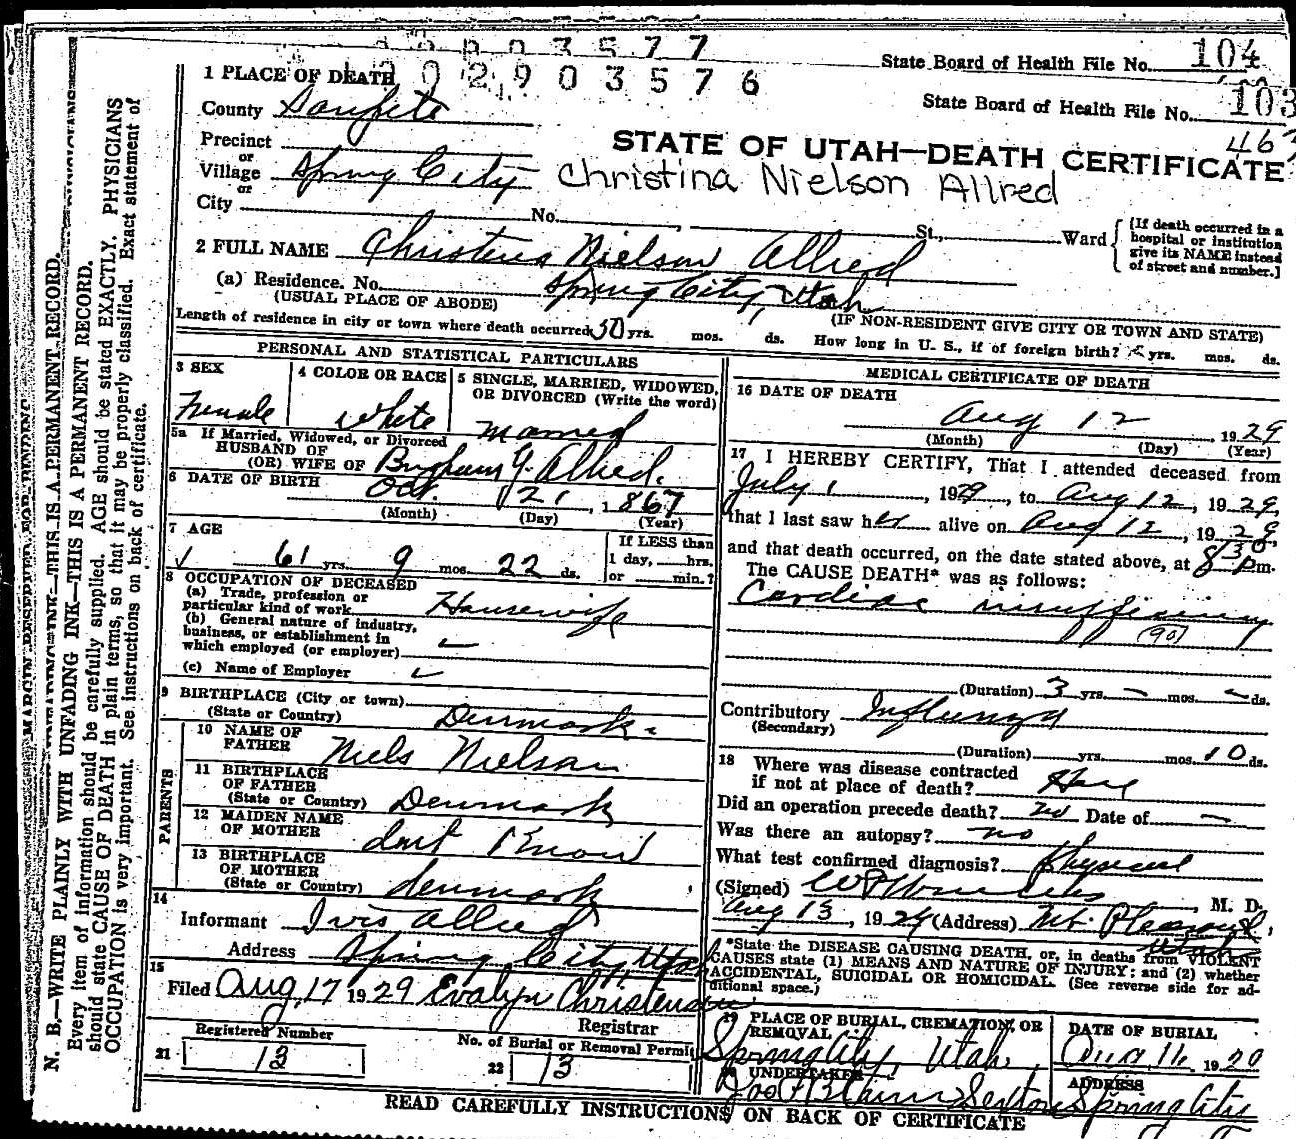 3577
2 0 2 9 0 3 5 7 6
State Board of Health File No. 104
State Board of Health File No. 103
1 PLACE OF DEATH
County Sanpete
STATE OF UTAH—DEATH CERTIFICATE
Precinct
or
Village Spring City Christina Nielson Allred
or
City No. St., Ward {If death occurred in a hospital or institution give its NAME instead of street and number.}
2 FULL NAME Christena Nielson Allred
(a) Residence. No. Spring City, Utah
(USUAL PLACE OF ABODE) (IF NON-RESIDENT GIVE CITY OR TOWN AND STATE)
Length of residence in city or town where death occurred 50 yrs. mos. ds. How long in U. S., if of foreign birth? yrs. mos. ds.
PERSONAL AND STATISTICAL PARTICULARS
3 SEX
Female
4 COLOR OR RACE
White
5 SINGLE, MARRIED, WIDOWED,
OR DIVORCED (Write the word)
Married
5a If Married, Widowed, or Divorced
HUSBAND OF
(OR) WIFE OF Brigham Y. Allred.
6 DATE OF BIRTH Oct. 21, 1867
(Month) (Day) (Year)
7 AGE
61 yrs. 9 mos. 22 ds.
If LESS than
1 day, hrs.
or min.?
8 OCCUPATION OF DECEASED
(a) Trade, profession or
particular kind of work Housewife
(b) General nature of industry,
business, or establishment in
which employed (or employer)
(c) Name of Employer
9 BIRTHPLACE (City or town)
(State or Country) Denmark
PARENTS
10 NAME OF
FATHER Niels Nielson
11 BIRTHPLACE
OF FATHER
(State or Country) Denmark
12 MAIDEN NAME
OF MOTHER dont Know
13 BIRTHPLACE
OF MOTHER
(State or Country) denmark
14
Informant Ivis Allred
Address Spring City Utah
15
Filed Aug 17 1929 Evalyn Christensen
Registrar
Registered Number
21 13
No. of Burial or Removal Permit
22 13
MEDICAL CERTIFICATE OF DEATH
16 DATE OF DEATH
Aug 12, 1929
(Month) (Day) (Year)
17 I HEREBY CERTIFY, That I attended deceased from
July 1, 1929, to Aug 12, 1929,
that I last saw her alive on Aug 12, 1929,
and that death occurred, on the date stated above, at 8:30 Pm.
The CAUSE DEATH* was as follows:
Cardiac insufficiency
(90)
(Duration) 3 yrs. – mos. – ds.
Contributory Influenza
(Secondary)
(Duration) yrs. mos. 10 ds.
18 Where was disease contracted
if not at place of death? Here
Did an operation precede death? no Date of –
Was there an autopsy? no
What test confirmed diagnosis? Physical
(Signed) M. D.
Aug 13, 1929 (Address) Mt. Pleasant,
Utah
*State the DISEASE CAUSING DEATH, or, in deaths from VIOLENT
CAUSES state (1) MEANS AND NATURE OF INJURY; and (2) whether
ACCIDENTAL, SUICIDAL OR HOMICIDAL. (See reverse side for ad-
ditional space.)
19 PLACE OF BURIAL, CREMATION, OR
REMOVAL
Spring City, Utah,
DATE OF BURIAL
Aug 16 1929
UNDERTAKER
Sexton
ADDRESS
Spring City
READ CAREFULLY INSTRUCTIONS ON BACK OF CERTIFICATE
MARGIN RESERVED FOR BINDING
N. B.—WRITE PLAINLY WITH UNFADING INK—THIS IS A PERMANENT RECORD.
Every item of information should be carefully supplied. AGE should be stated EXACTLY. PHYSICIANS
should state CAUSE OF DEATH in plain terms, so that it may be properly classified. Exact statement of
OCCUPATION is very important. See instructions on back of certificate.